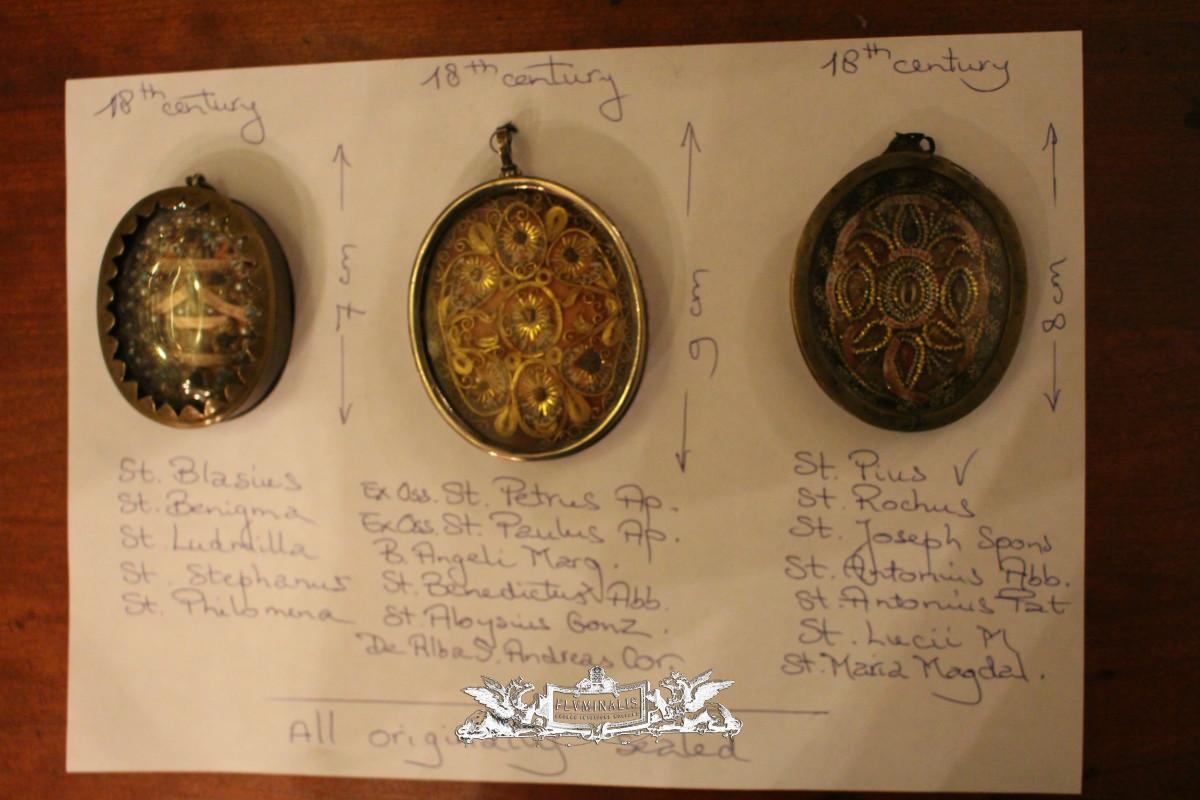 18th century
18th century
18th century
7 cm
9 cm
8 cm
St. Blasius
St. Benigma
St Ludmilla
St. Stephanus
St. Philomena
Ex Oss. St. Petrus Ap.
Ex Oss. St. Paulus Ap.
B. Angeli Marg.
St. Benedictus Abb.
St. Aloysius Gonz.
De Alba S. Andreas Cor.
St. Pius V
St. Rochus
St. Joseph Spons
St. Antonius Abb.
St. Antonius Pat
St. Lucii M
St. Maria Magdal.
FLVMINALIS
All originally sealed